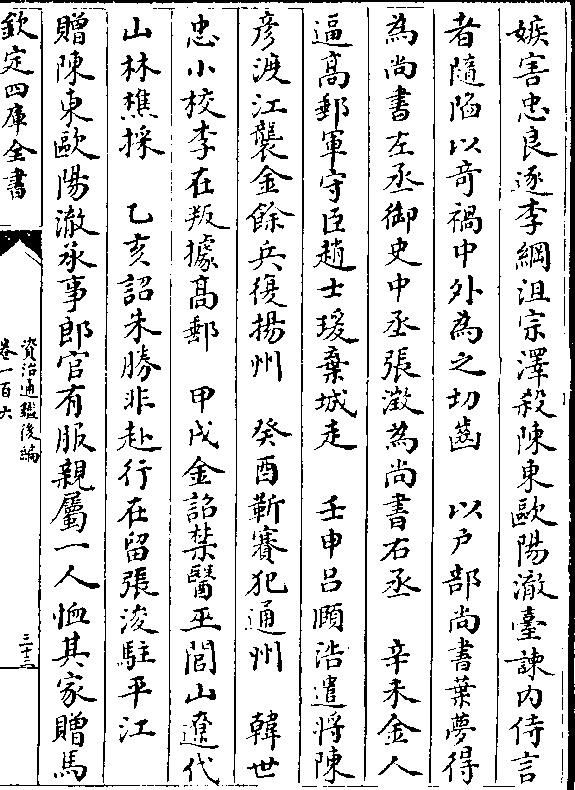 嫉害忠良逐李綱沮宗澤殺陳東歐陽澈臺諫内侍言
者隨陷以竒禍中外為之切齒　以户部尚書葉夢得
為尚書左丞御史中丞張澂為尚書右丞　辛未金人
逼髙郵軍守臣趙士瑗棄城走　壬申吕頤浩遣將陳
彦渡江襲金餘兵復揚州　癸酉靳賽犯通州　韓世
忠小校李在叛據髙郵　甲戌金詔禁醫巫閭山遼代
山林樵採　乙亥詔朱勝非赴行在留張浚駐平江
贈陳東歐陽澈承事郎官有服親屬一人恤其家贈馬
欽定四庫全書
資治通鑑後編
卷一百六
三十三